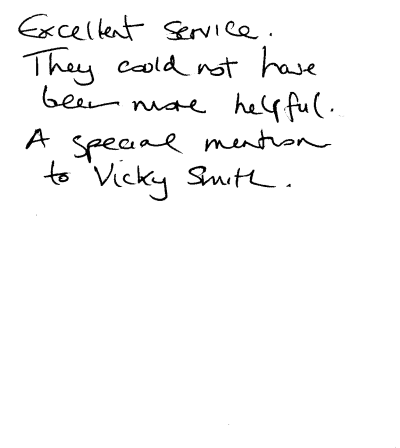 Excellent service.
They could not have
been more helpful.
A special mention
to Vicky Smith.